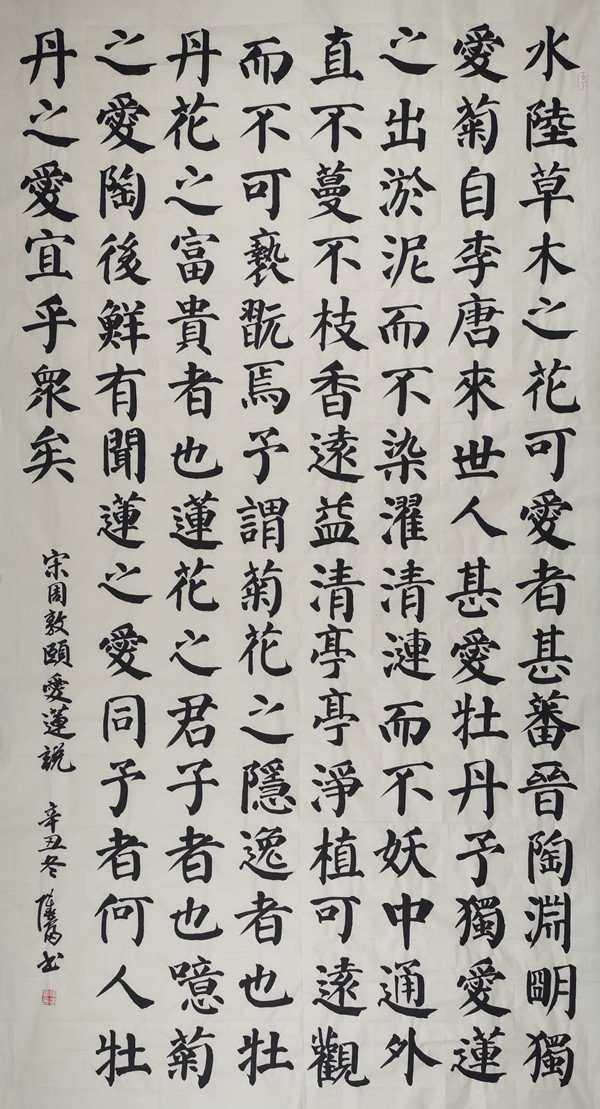 水陸草木之花可愛者甚蕃晉陶淵明獨
愛菊自李唐來世人甚愛牡丹予獨愛蓮
之出淤泥而不染濯清漣而不妖中通外
直不蔓不枝香遠益清亭亭淨植可遠觀
而不可褻翫焉予謂菊花之隱逸者也牡
丹花之富貴者也蓮花之君子者也噫菊
之愛陶後鮮有聞蓮之愛同予者何人牡
丹之愛宜乎眾矣
宋周敦頤愛蓮說 辛丑冬 書